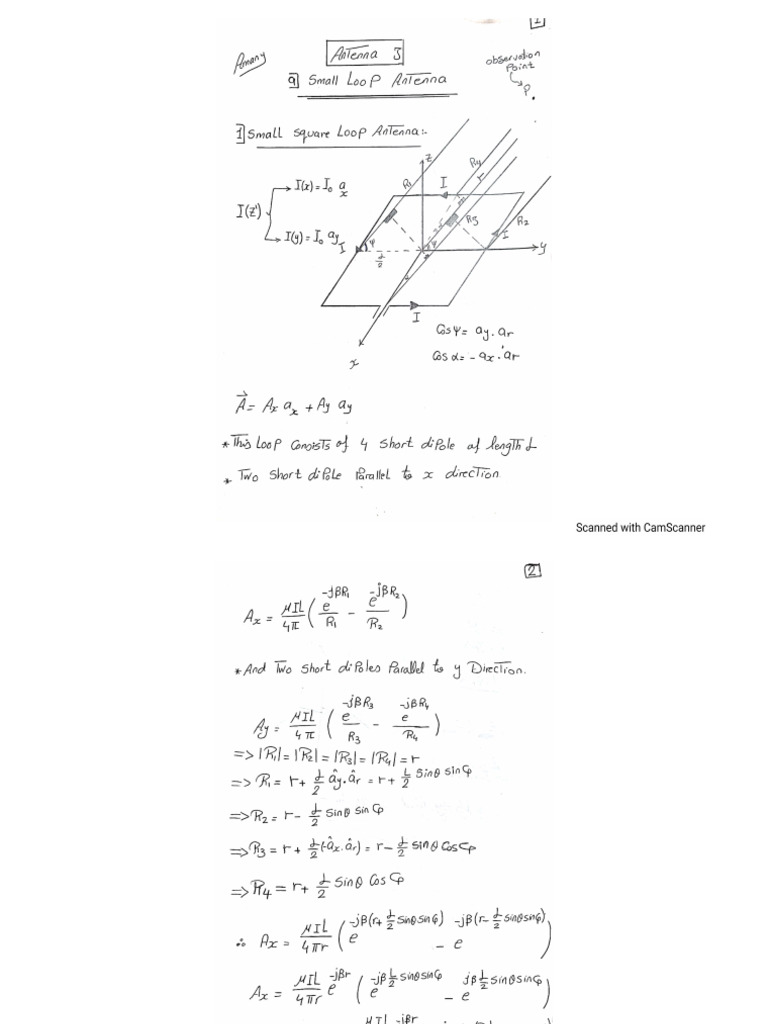 1
Amany
Antenna 3
observation
Point
P.
9 Small Loop Antenna
1 Small square Loop Antenna:-
I(z')
I(x) = I₀ a_x
I(y) = I₀ a_y
z
R₁
I
R₄
r
R₃
R₂
I
ψ
L/2
ψ
α
I
y
I
x
Cos ψ = a_y . a_r
Cos α = - a_x . a_r
A⃗ = A_x a_x + A_y a_y
* This Loop Consists of 4 short dipole of length L
* Two short dipole Parallel to x direction
Scanned with CamScanner
2
A_x = μIL/4π ( e^(-jβR₁)/R₁ - e^(-jβR₂)/R₂ )
* And Two short dipoles Parallel to y Direction.
A_y = μIL/4π ( e^(-jβR₃)/R₃ - e^(-jβR₄)/R₄ )
=> |R₁| = |R₂| = |R₃| = |R₄| = r
=> R₁ = r + L/2 â_y . â_r = r + L/2 sinθ sinφ
=> R₂ = r - L/2 sinθ sinφ
=> R₃ = r + L/2 (-â_x . â_r) = r - L/2 sinθ cosφ
=> R₄ = r + L/2 sinθ cosφ
∴ A_x = μIL/4πr ( e^(-jβ(r + L/2 sinθ sinφ)) - e^(-jβ(r - L/2 sinθ sinφ)) )
A_x = μIL/4πr e^(-jβr) ( e^(-jβ L/2 sinθ sinφ) - e^(jβ L/2 sinθ sinφ) )
μIL -jβr